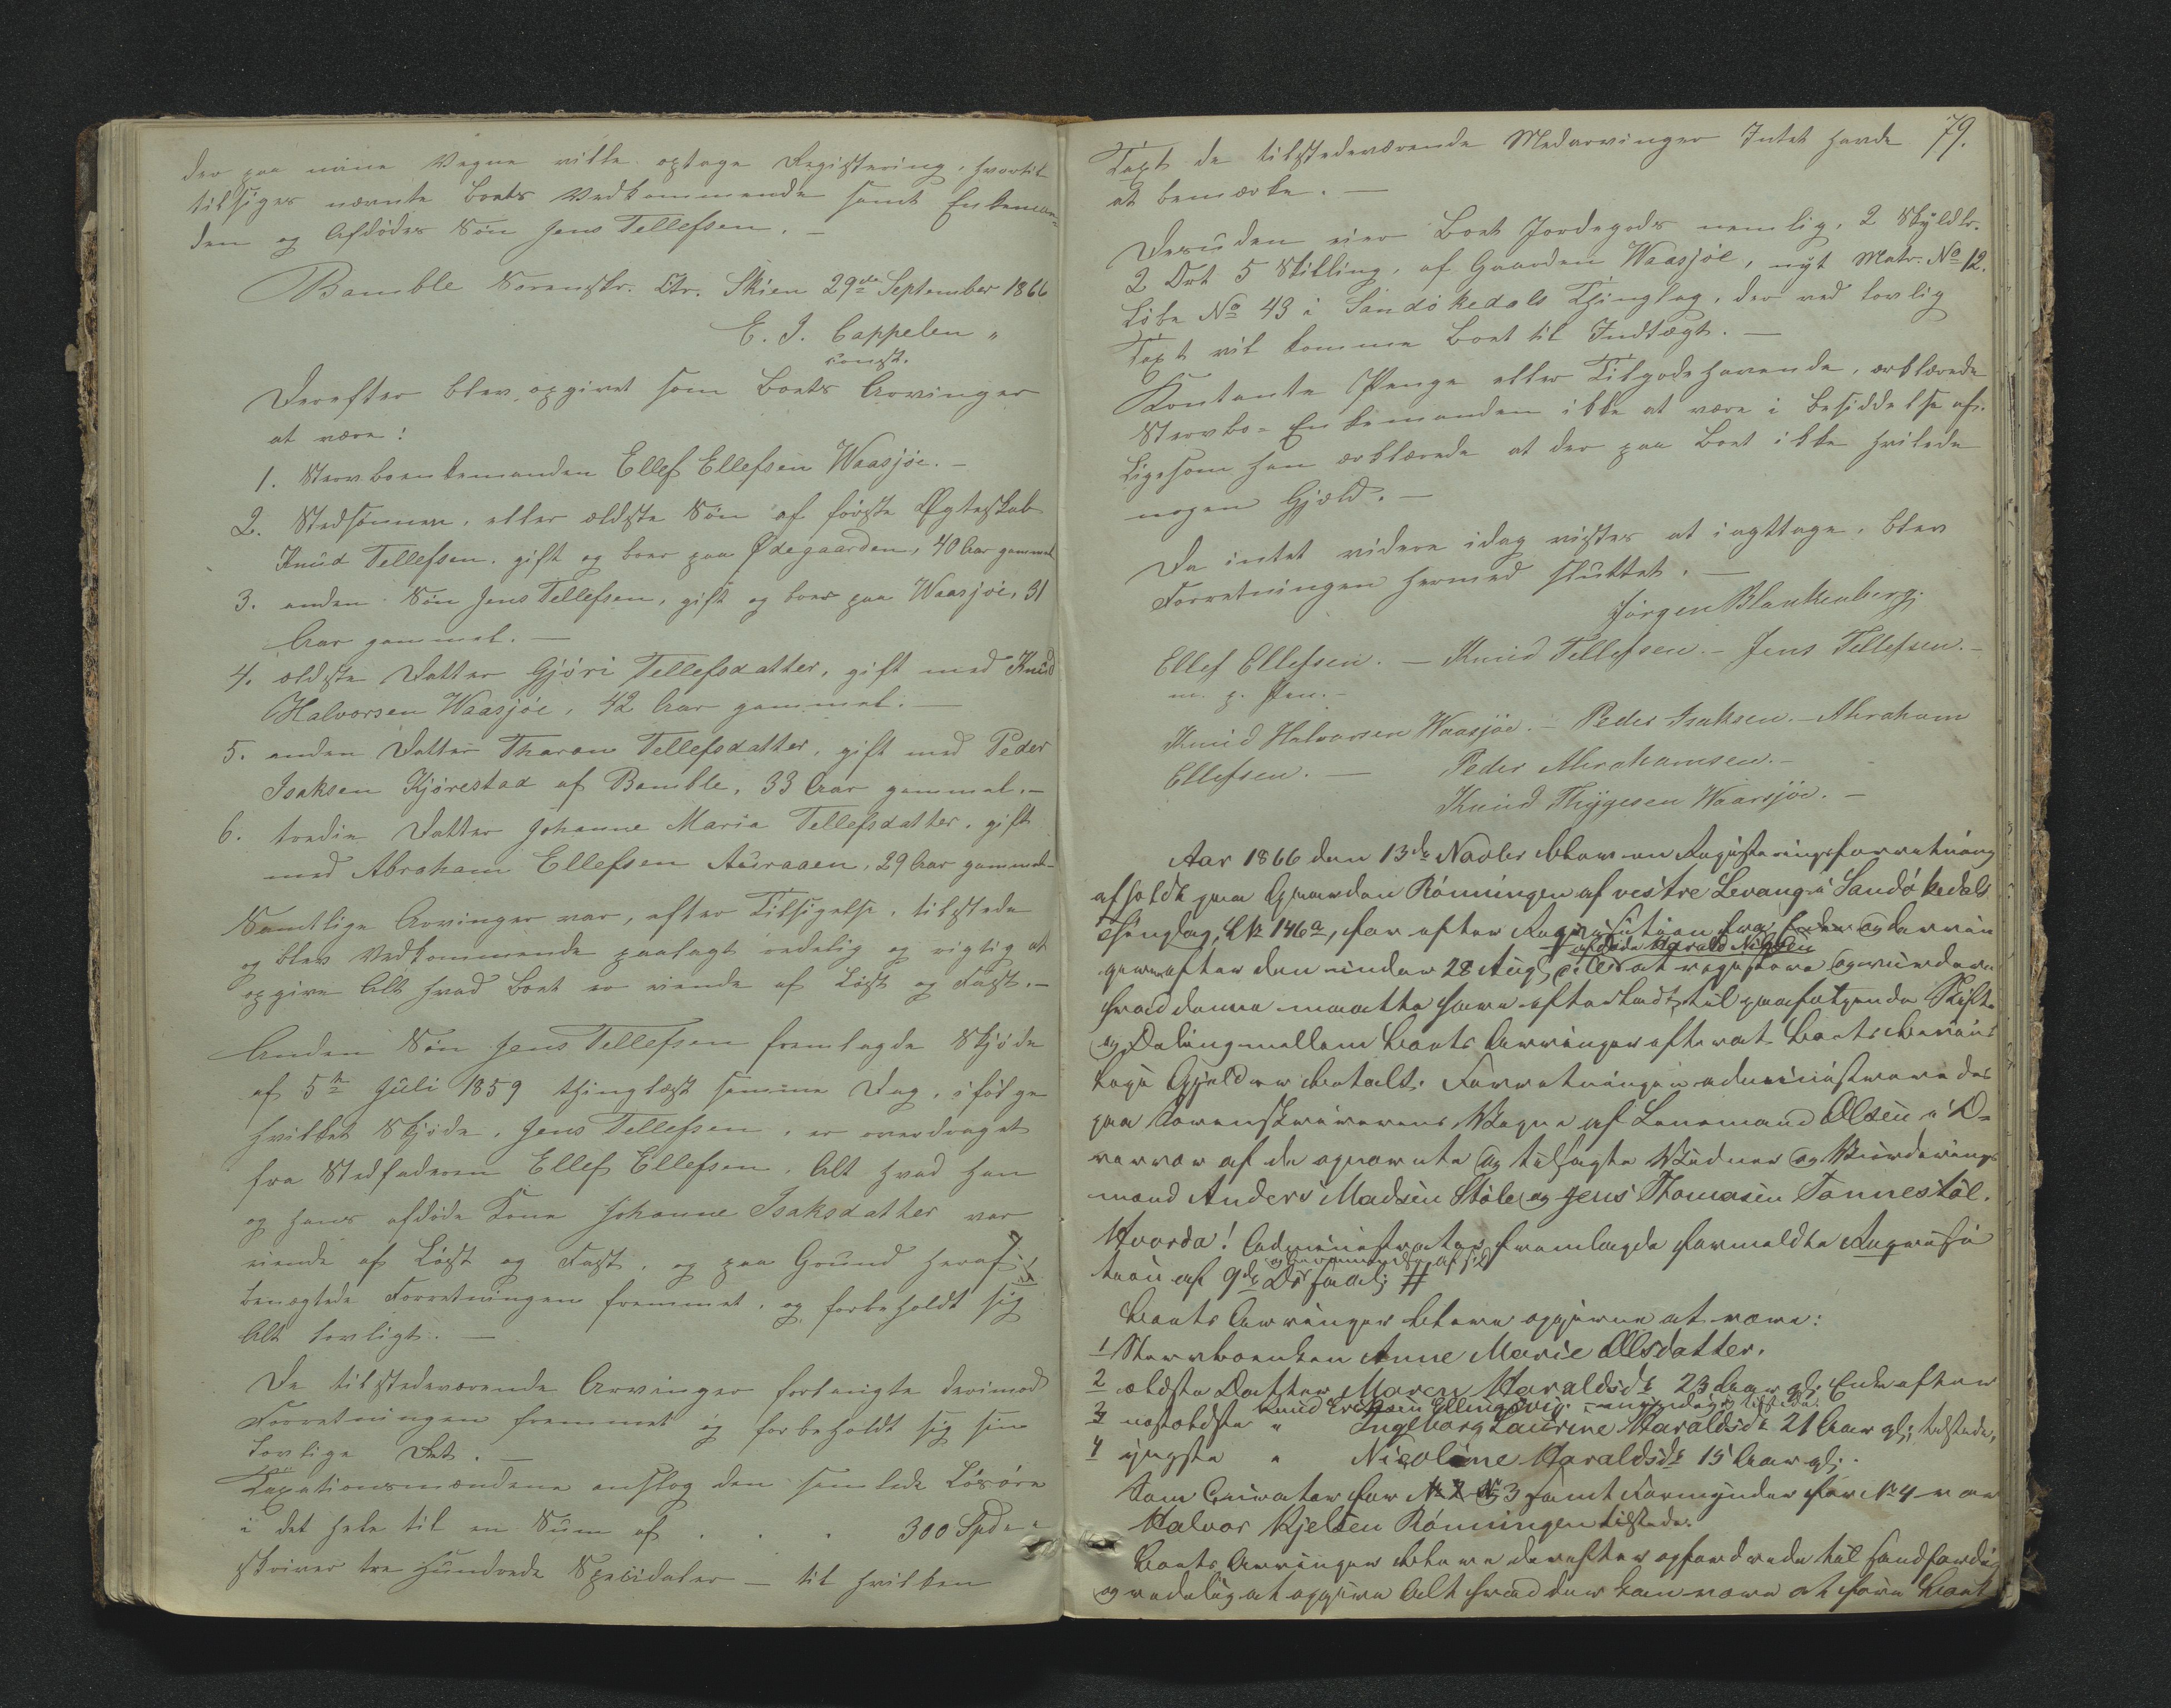 der paa mine Vegne ville optage Registering, hvortil
tilsiges nævnte Boets Vedkommende samt Enkeman-
den og Afdødes Søn Jens Tellefsen. –
Bamble Sorenskr. Ctr. Skien 29de September 1866
E. J. Cappelen "
const.
Derefter blev opgivet som Boets Arvinger
at være:
1. Stervboenkemanden Ellef Ellefsen Waasjøe. –
2. Stedsønnen, eller ældste Søn af første Ægteskab
Knud Tellefsen, gift og boer paa Ødegaarden, 40 Aar gammel
3. anden Søn Jens Tellefsen, gift og boer paa Waasjøe, 31
Aar gammel. –
4. ældste Datter Gjøri Tellefsdatter, gift med Knud
Halvorsen Waasjøe, 42 Aar gammel. –
5. anden Datter Tharan Tellefsdatter, gift med Peder
Isaksen Kjørestad af Bamble, 33 Aar gammel. –
6. tredie Datter Johanne Maria Tellefsdatter, gift
med Abraham Ellefsen Auraaen, 29 Aar gammel –
Samtlige Arvinger var, efter Tilsigelse, tilstede
og blev Vedkommende paalagt redelig og rigtig at
opgive Alt hvad Boet er eiende af Løst og Fast. –
Anden Søn Jens Tellefsen fremlagde Skjøde
af 5te Juli 1859 thinglæst samme Dag, ifølge
hvilket Skjøde, Jens Tellefsen, er overdraget
fra Stedfaderen Ellef Ellefsen, Alt hvad han
og hans afdøde Kone Johanne Isaksdatter var
eiende af Løst og Fast, og paa Grund heraf
benegtede Forretningen fremmet, og forbeholdt sig
Alt lovligt. –
De tilstedeværende Arvinger forlangte derimod
Forretningen fremmet og forbeholdt sig sin
lovlige Ret. –
Taxationsmændene anslog den samlede Løsøre
i det hele til en Sum af . . . 300 Spd "
skriver tre Hundrede Speciedaler – til hvilken
79.
Taxt de tilstedeværende Medarvinger Intet havde
at bemærke. –
Desuden eier Boet Jordegods nemlig, 2 Skyldlr.
2 Ort 5 Skilling, af Gaarden Waasjøe, nyt Matr. No 12.
Løbe No 43 i Sandøkedals Thinglag, der ved lovlig
Taxt vil komme Boet til Indtægt. –
Kontante Penge eller Tilgodehavende, erklærede
Stervbo-Enkemanden ikke at være i Besiddelse af.
Ligesom han erklærede at der paa Boet ikke hvilede
nogen Gjæld. –
Da intet videre idag vistes at iagttage, blev
Forretningen hermed sluttet. –
Jørgen Blankenberg.
Ellef Ellefsen. – Knud Tellefsen. – Jens Tellefsen. –
m. p. Pen. –
Knud Halvorsen Waasjøe. – Peder Isaksen. – Abraham
Ellefsen. – Peder Abrahamsen. –
Knud Thygesen Waasjøe. –
Aar 1866 den 13de Novbr blev en Registeringsforretning
afholdt paa Gaarden Rønningen af vestre Levang i Sandøkedals
Thinglag, L№ 146a, for efter Requisition fra Enken og Arvin
afdøde Harald Nilssen
gerne efter den under 28 Aug at registere og vurdere
hvad denne maatte have efterladt, til paafølgende Skifte
og Deling mellem Boets Arvinger efterat Boets bevis
lige Gjæld er betalt. Forretningen administreredes
paa Sorenskriverens Vegne af Lensmand Olsen i O-
vervær af de opnævnte og tilsagte Vidner og Vurderings
mænd Anders Madsen Støle og Jens Thomasen Tonnestøl.
Hvorda! Administrator fremlagde formeldte Requisi
tion af 9de Ds saal; #
Boets Arvinger bleve opgivne at være:
1 Stervboenken Anne Marie Olsdatter.
2 ældste Datter Maren Haraldsdr 23 Aar gl; Enke efter
Knud Ericksen Ellingsvig tilstede.
3 næstældste " Ingeborg Laurine Haraldsdr 21 Aar gl; tilstede,
4 yngste " Nicoline Haraldsdr 15 Aar gl;
Som Curator for № 3 samt Formynder for № 4 var
Halvor Kjelsen Rønningen tilstede.
Boets Arvinger bleve derefter opfordrede til sandfærdig
og redelig at opgive Alt hvad der kan være at føre Boet